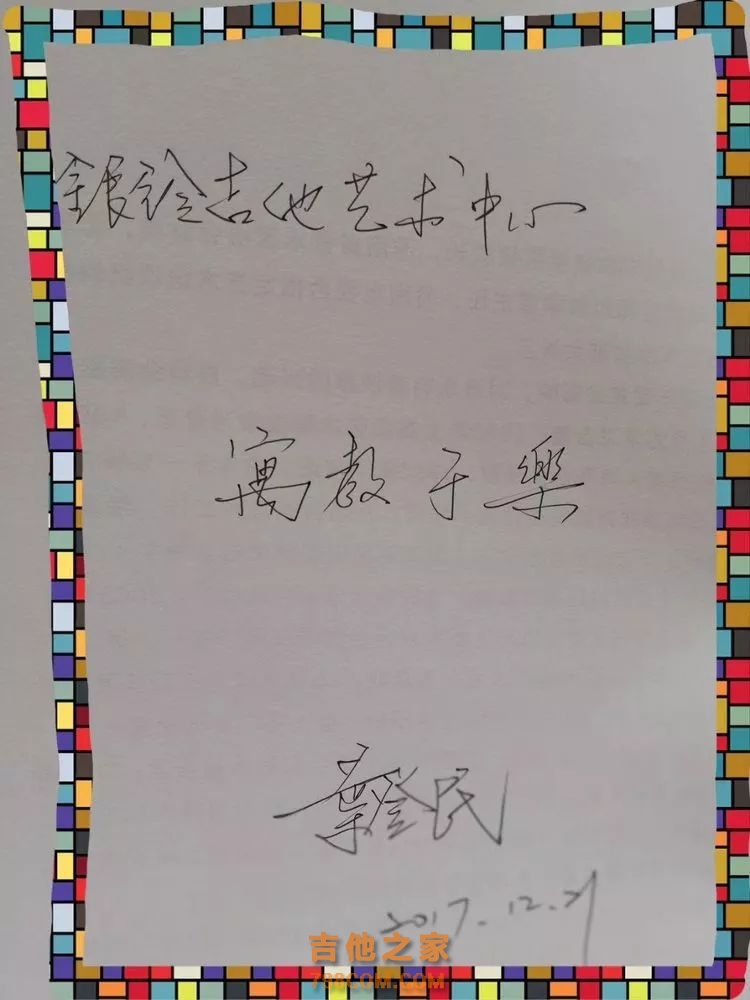 银铃吉他艺术中心
寓教于樂
葉登民
2017.12.21
吉他之家
798COM.COM